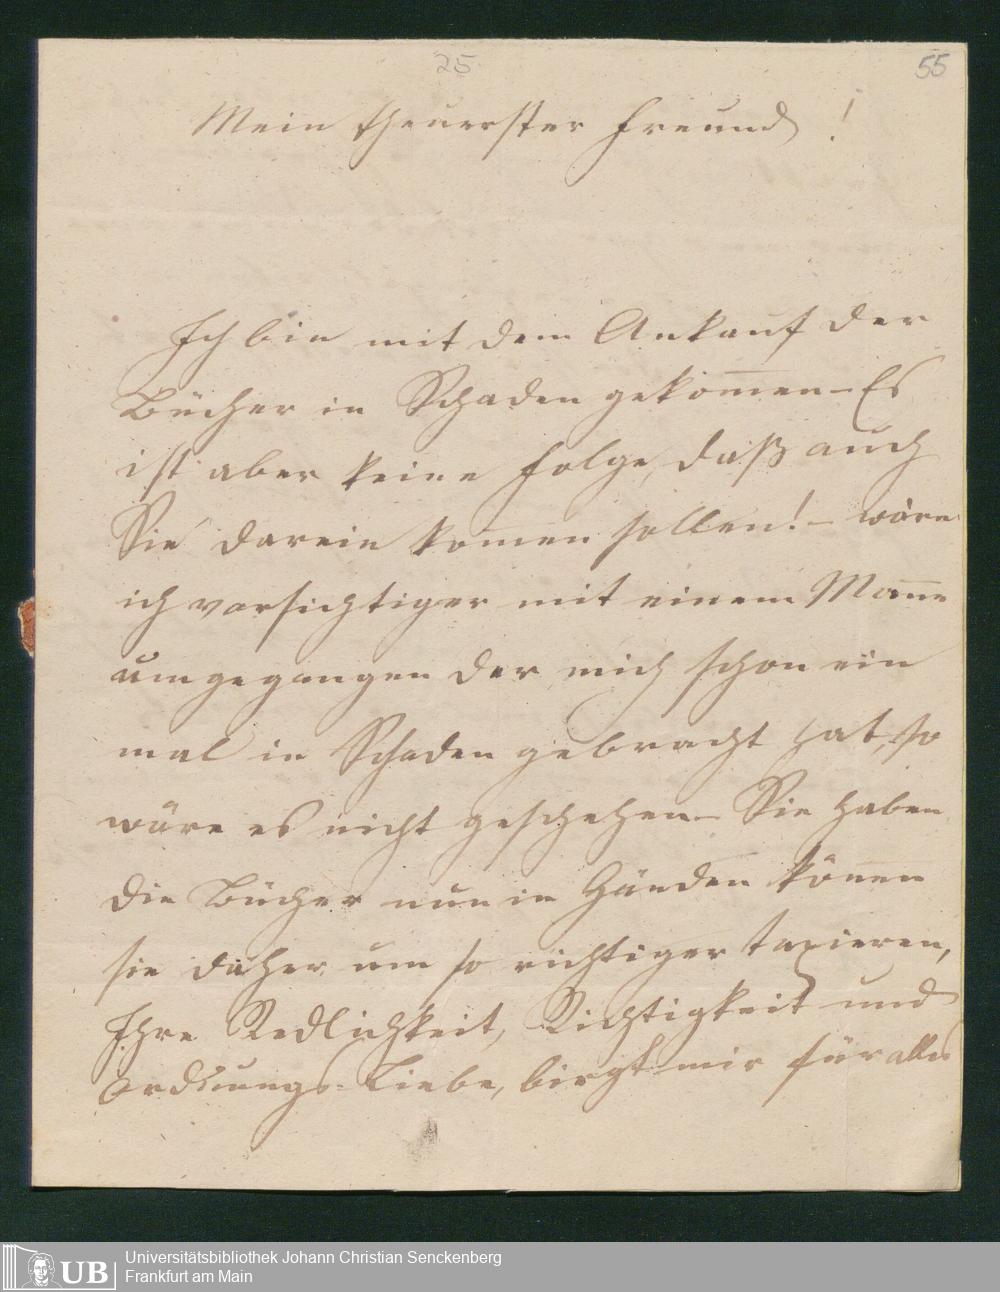 25 55
Mein theuerster Freund!
Ich bin mit dem Ankauf der
Bücher in Schaden gekom̄en – Es
ist aber keine Folge, daß auch
Sie darein kom̄en sollen! – wäre
ich vorsichtiger mit einem Man̄e
umgegangen der mich schon ein
mal in Schaden gebracht hat, so
wäre es nicht geschehen – Sie haben
die Bücher nun in Händen kön̄en
sie daher um so richtiger taxieren,
Ihre Redlichkeit, Richtigkeit und
Ordnungs-Liebe, birgt mir für alles
UB
Universitätsbibliothek Johann Christian Senckenberg
Frankfurt am Main